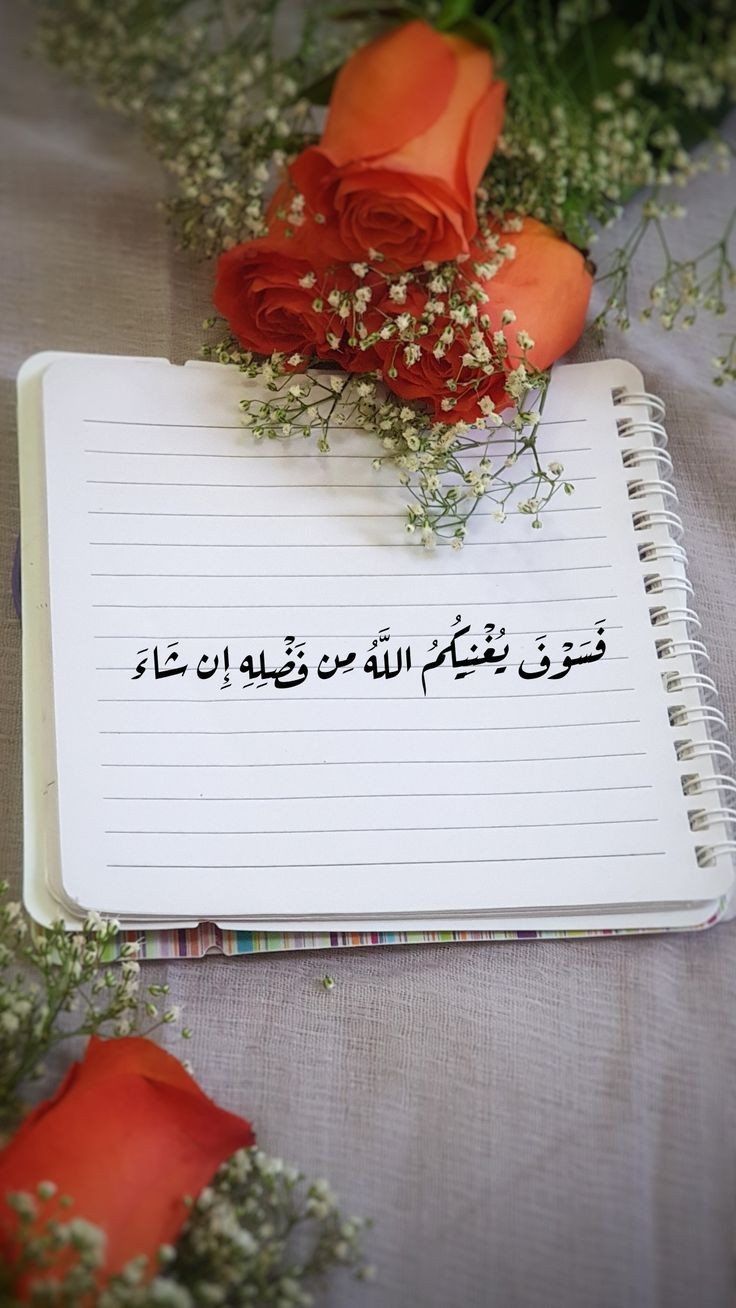 فَسَوْفَ يُغْنِيكُمُ اللَّهُ مِن فَضْلِهِ إِن شَاءَ